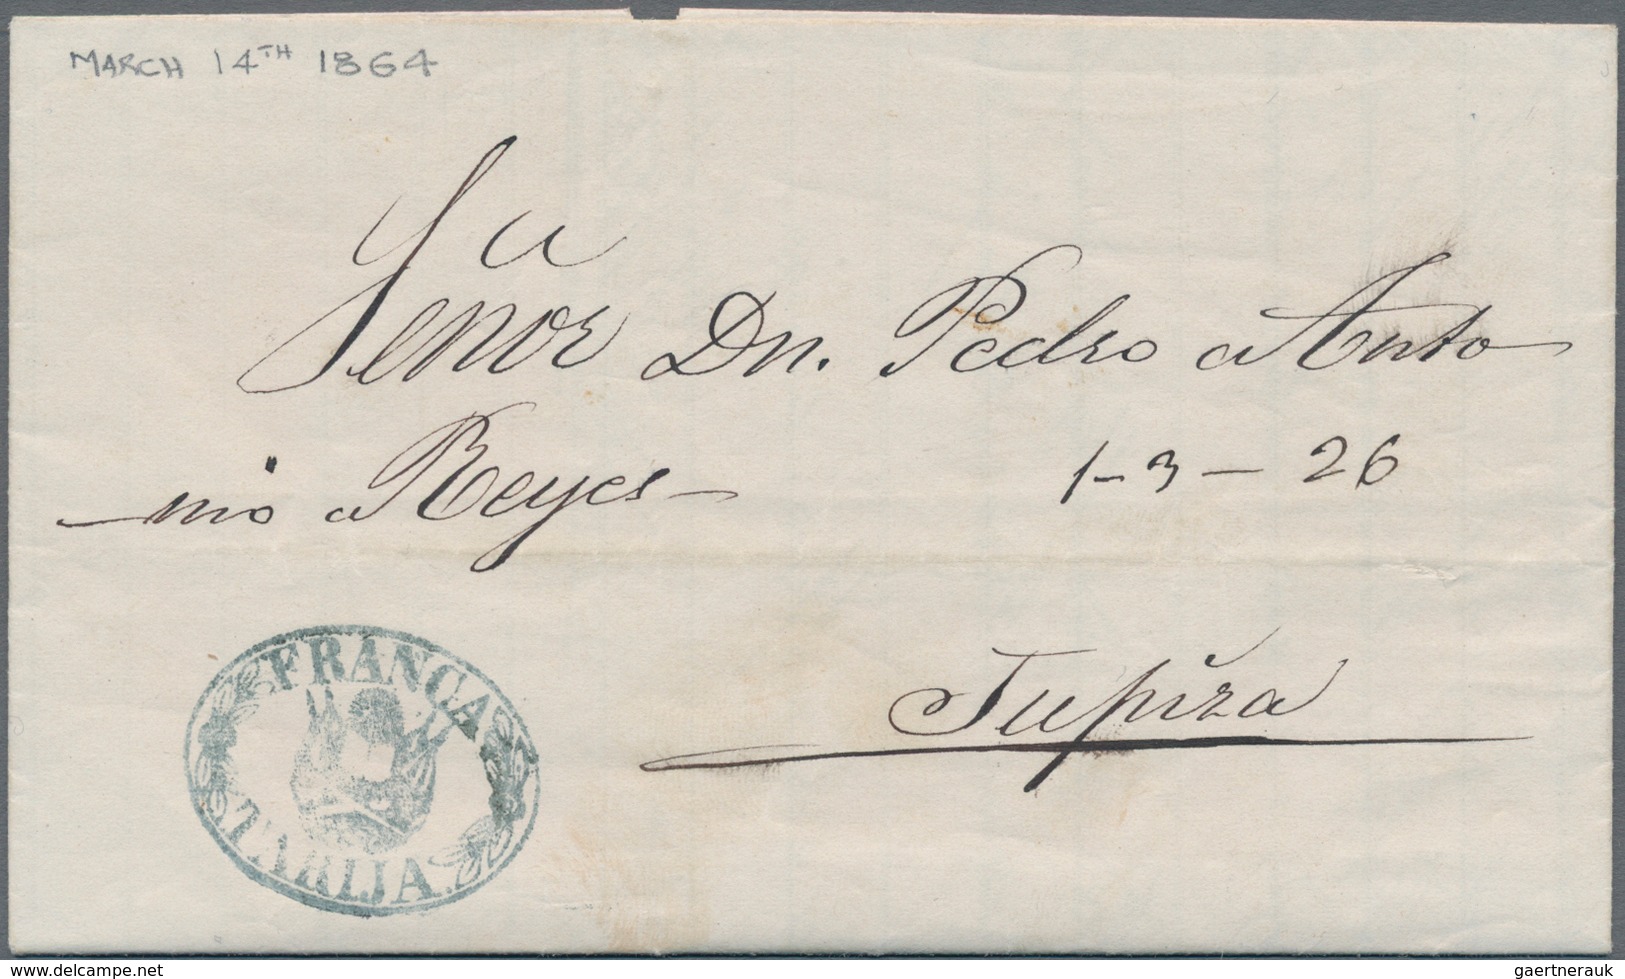 MARCH 14TH 1864
Sr
Señor Dn. Pedro Anto
nio Reyes
1-3-26
Tupiza
FRANCA
TARIJA
www.delcampe.net
gaertnerauk